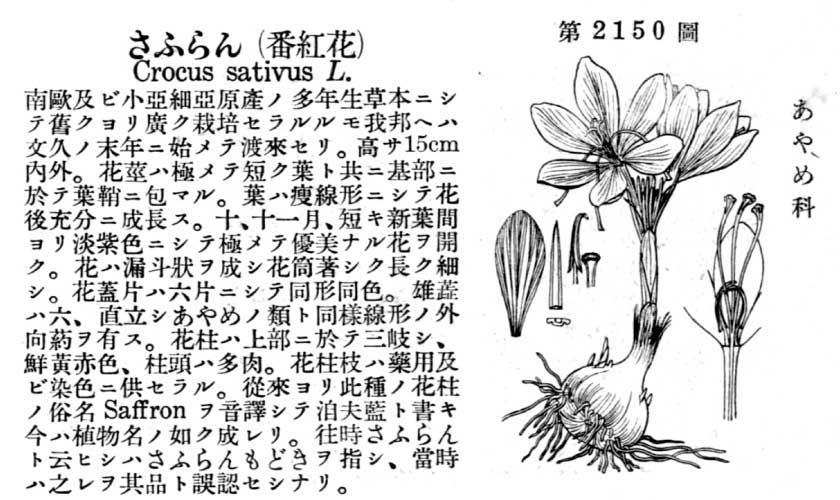 第2150圖
さふらん(番紅花)
Crocus sativus L.
南歐及ビ小亞細亞原產ノ多年生草本ニシ
テ舊クヨリ廣ク栽培セラルルモ我邦ヘハ
文久ノ末年ニ始メテ渡來セリ。高サ15cm
內外。花莖ハ極メテ短ク葉ト共ニ基部ニ
於テ葉鞘ニ包マル。葉ハ瘦線形ニシテ花
後充分ニ成長ス。十、十一月、短キ新葉間
ヨリ淡紫色ニシテ極メテ優美ナル花ヲ開
ク。花ハ漏斗狀ヲ成シ花筒著シク長ク細
シ。花蓋片ハ六片ニシテ同形同色。雄蕋
ハ六、直立シあやめノ類ト同樣線形ノ外
向葯ヲ有ス。花柱ハ上部ニ於テ三岐シ、
鮮黃赤色、柱頭ハ多肉。花柱枝ハ藥用及
ビ染色ニ供セラル。從來ヨリ此種ノ花柱
ノ俗名 Saffron ヲ音譯シテ泊夫藍ト書キ
今ハ植物名ノ如ク成レリ。往時さふらん
ト云ヒシハさふらんもどきヲ指シ、當時
ハ之レヲ其品ト誤認セシナリ。
あやめ科